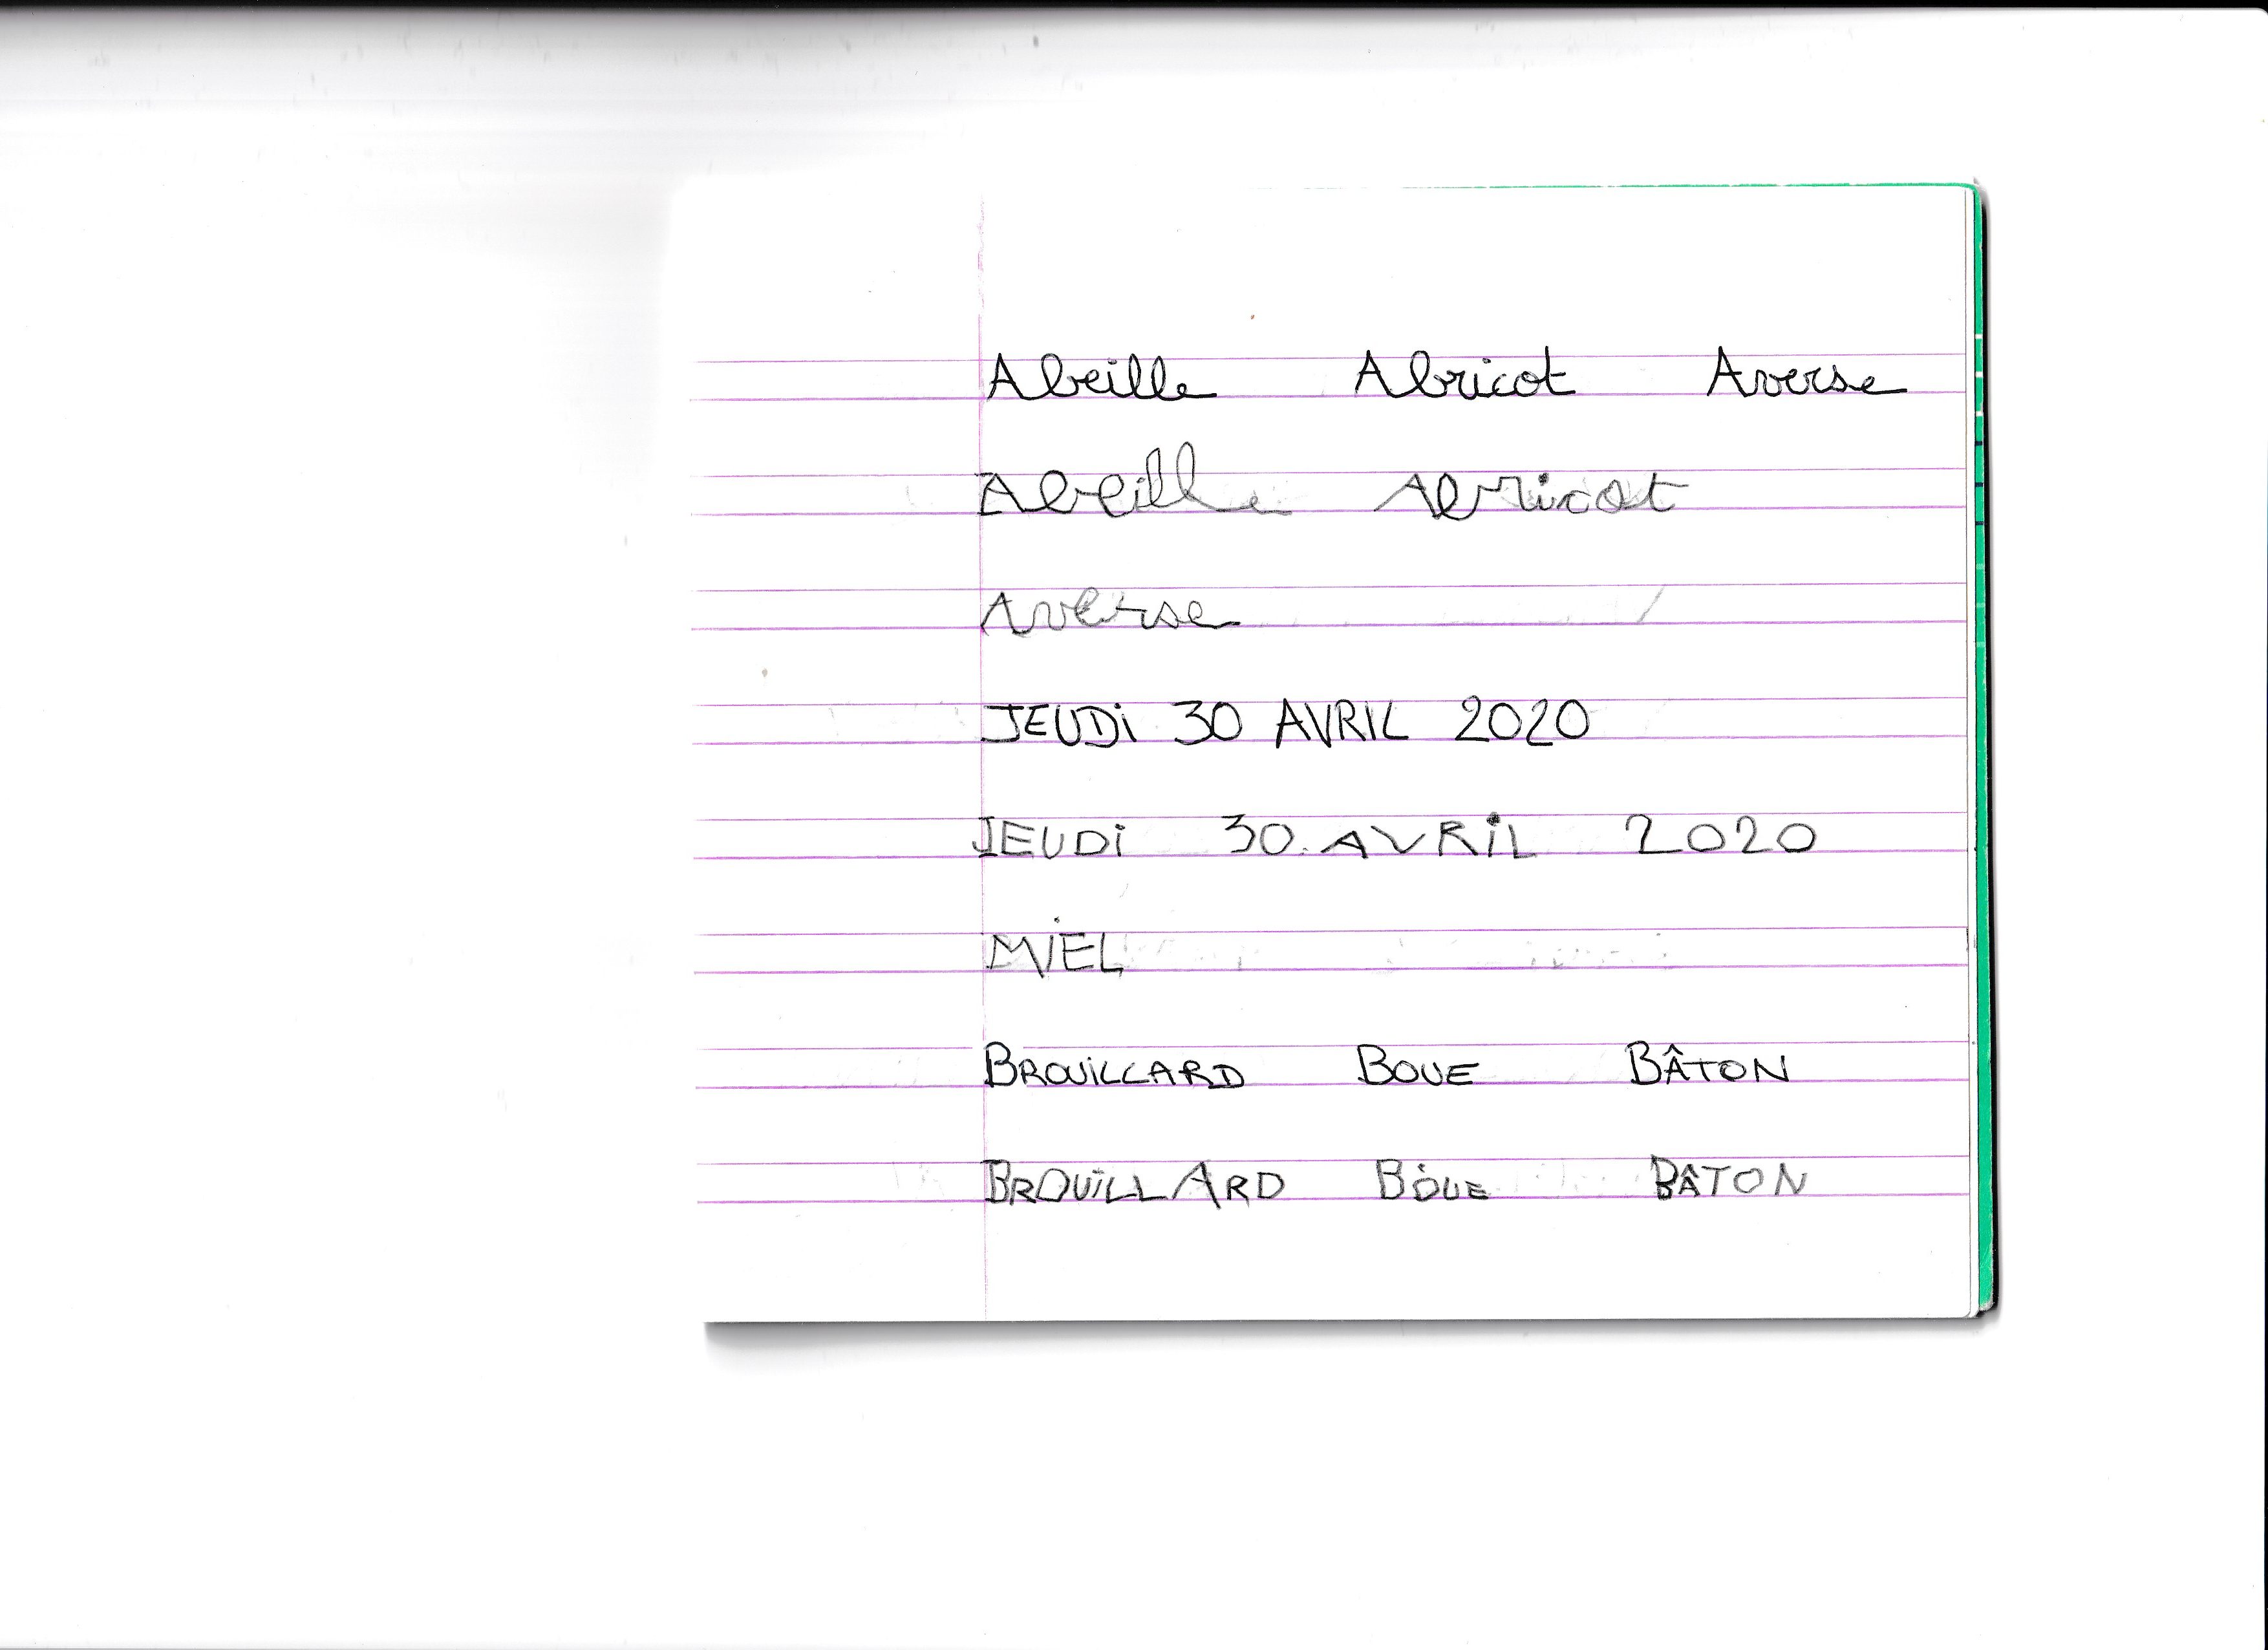 Abeille Abricot Averse
Abeille Abricot
Averse
JEUDi 30 AVRIL 2020
JEUDi 30. AVRiL 2020
MiEL
BROUiLLARD BOUE BÂTON
BROUiLLARD BOUE BÂTON